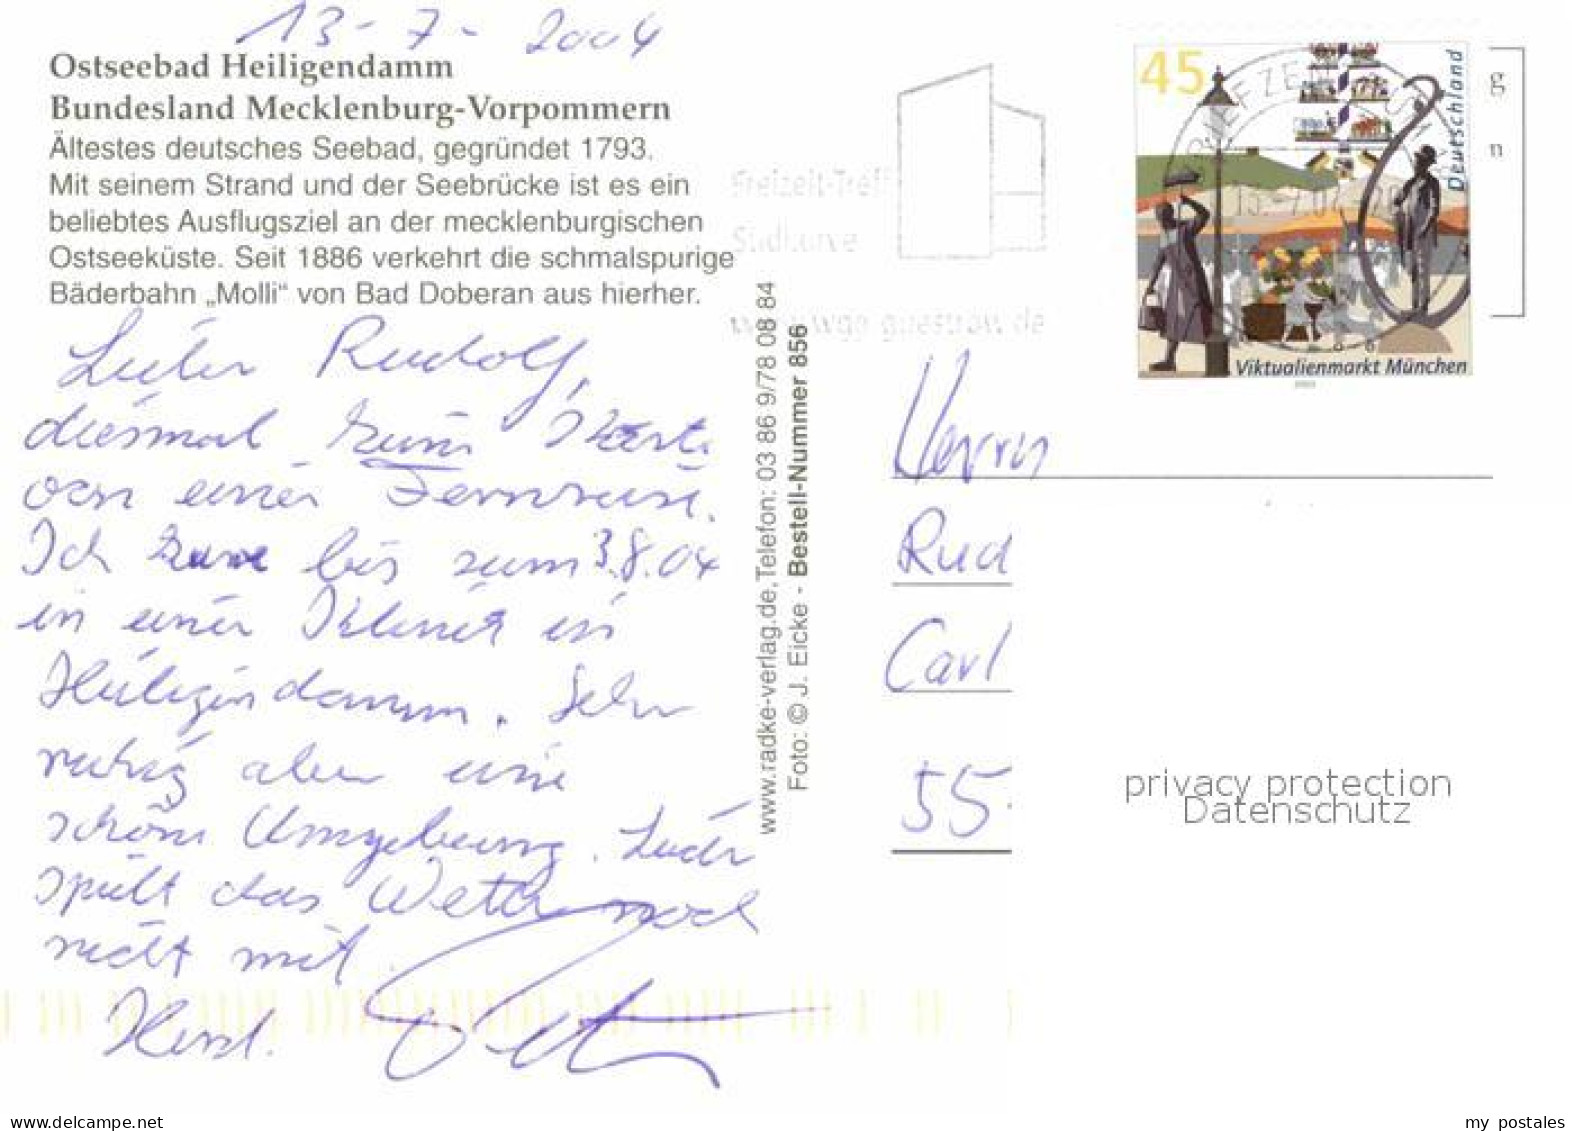 13-7-2004
Ostseebad Heiligendamm
Bundesland Mecklenburg-Vorpommern
Ältestes deutsches Seebad, gegründet 1793.
Mit seinem Strand und der Seebrücke ist es ein
beliebtes Ausflugsziel an der mecklenburgischen
Ostseeküste. Seit 1886 verkehrt die schmalspurige
Bäderbahn „Molli“ von Bad Doberan aus hierher.
Lieber Rudolf,
diesmal
einer Fernreise.
Ich bis zum 3.8.04
in einer Klinik in
Heiligendamm. Sehr
ruhig aber eine
schöne Umgebung. Leider
spielt das Wetter noch
nicht mit.
Herzl.
www.radke-verlag.de, Telefon: 03 86 9/78 08 84
Foto: © J. Eicke - Bestell-Nummer 856
Freizeit-Treff
Südkurve
45
Deutschland
Viktualienmarkt München
BRIEFZEN
g
n
Herrn
Rud
Carl
55
privacy protection
Datenschutz
www.delcampe.net
my postales